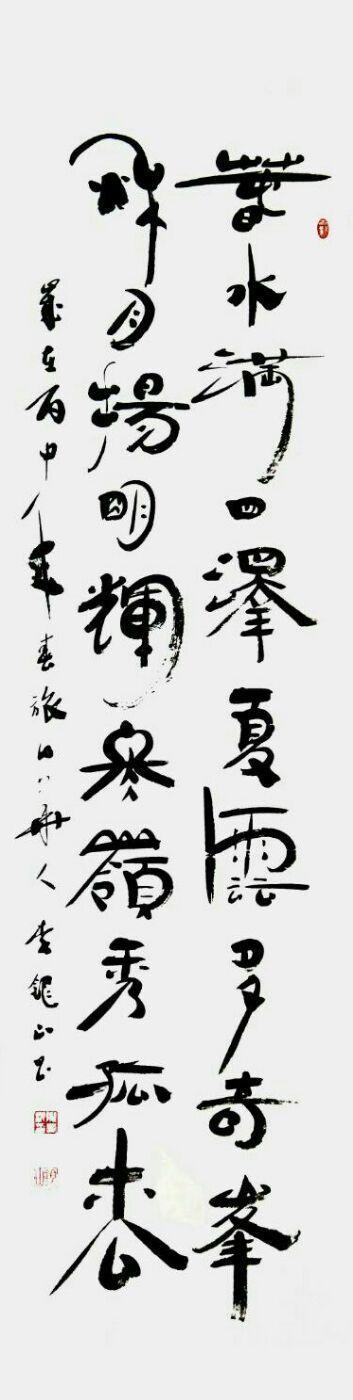 春水滿四澤夏雲多奇峯
秋月揚明輝冬嶺秀孤松
歲在丙申年春旅日華人李